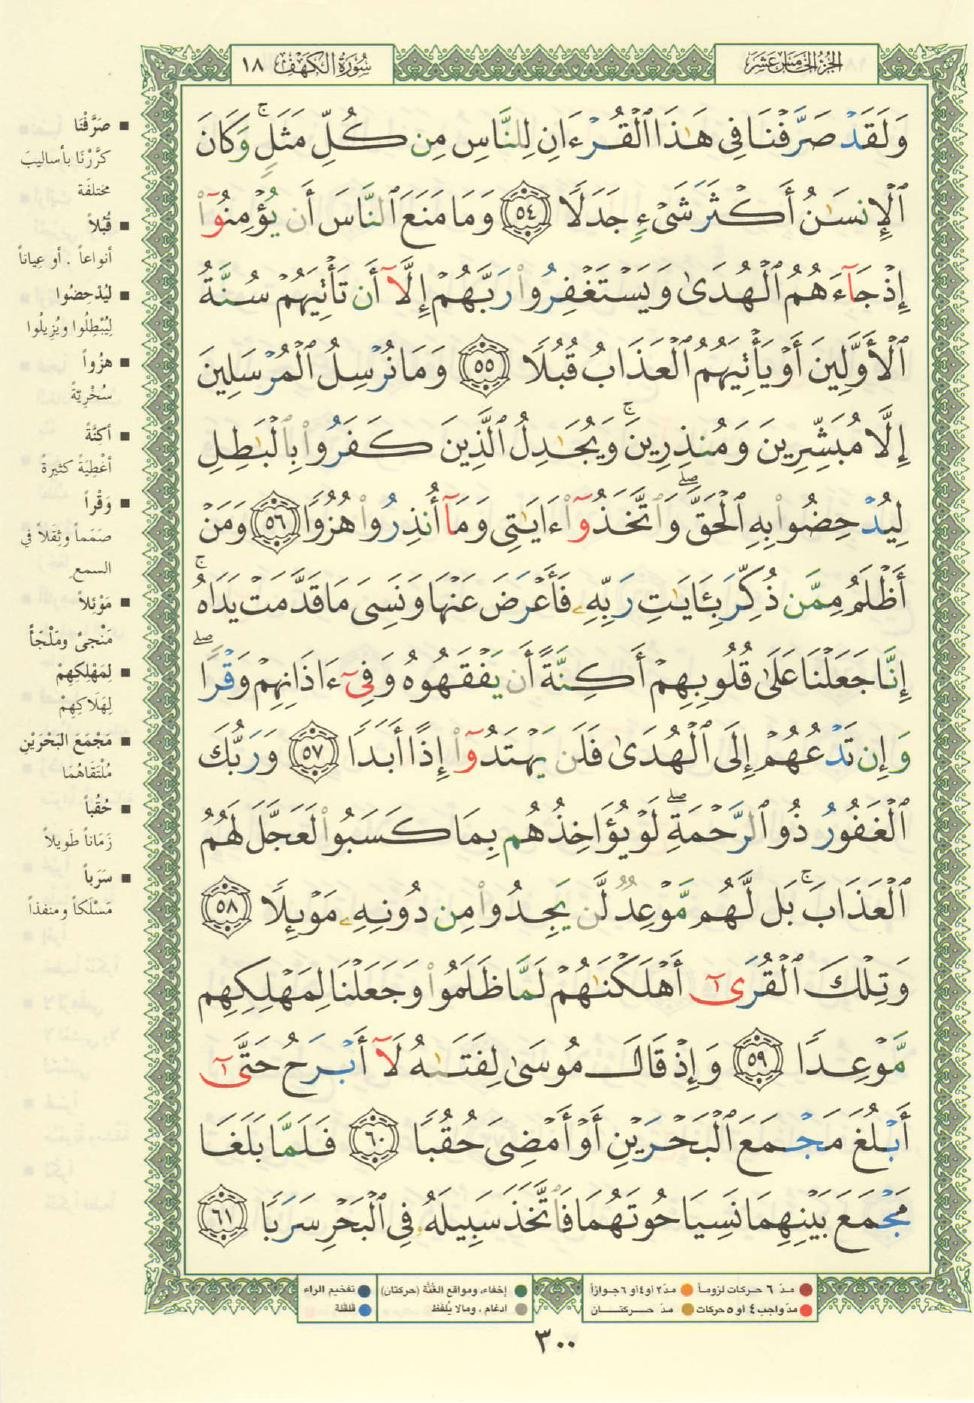 الجزء الخامس عشر
سورة الكهف ١٨
وَلَقَدْ صَرَّفْنَا فِى هَٰذَا ٱلْقُرْءَانِ لِلنَّاسِ مِن كُلِّ مَثَلٍۚ وَكَانَ
ٱلْإِنسَٰنُ أَكْثَرَ شَىْءٍ جَدَلًا ٥٤ وَمَا مَنَعَ ٱلنَّاسَ أَن يُؤْمِنُوٓا۟
إِذْ جَآءَهُمُ ٱلْهُدَىٰ وَيَسْتَغْفِرُوا۟ رَبَّهُمْ إِلَّآ أَن تَأْتِيَهُمْ سُنَّةُ
ٱلْأَوَّلِينَ أَوْ يَأْتِيَهُمُ ٱلْعَذَابُ قُبُلًا ٥٥ وَمَا نُرْسِلُ ٱلْمُرْسَلِينَ
إِلَّا مُبَشِّرِينَ وَمُنذِرِينَۚ وَيُجَٰدِلُ ٱلَّذِينَ كَفَرُوا۟ بِٱلْبَٰطِلِ
لِيُدْحِضُوا۟ بِهِ ٱلْحَقَّۖ وَٱتَّخَذُوٓا۟ ءَايَٰتِى وَمَآ أُنذِرُوا۟ هُزُوًا ٥٦ وَمَنْ
أَظْلَمُ مِمَّن ذُكِّرَ بِـَٔايَٰتِ رَبِّهِۦ فَأَعْرَضَ عَنْهَا وَنَسِىَ مَا قَدَّمَتْ يَدَاهُۚ
إِنَّا جَعَلْنَا عَلَىٰ قُلُوبِهِمْ أَكِنَّةً أَن يَفْقَهُوهُ وَفِىٓ ءَاذَانِهِمْ وَقْرًاۖ
وَإِن تَدْعُهُمْ إِلَى ٱلْهُدَىٰ فَلَن يَهْتَدُوٓا۟ إِذًا أَبَدًا ٥٧ وَرَبُّكَ
ٱلْغَفُورُ ذُو ٱلرَّحْمَةِۖ لَوْ يُؤَاخِذُهُم بِمَا كَسَبُوا۟ لَعَجَّلَ لَهُمُ
ٱلْعَذَابَۚ بَل لَّهُم مَّوْعِدٌ لَّن يَجِدُوا۟ مِن دُونِهِۦ مَوْئِلًا ٥٨
وَتِلْكَ ٱلْقُرَىٰٓ أَهْلَكْنَٰهُمْ لَمَّا ظَلَمُوا۟ وَجَعَلْنَا لِمَهْلِكِهِم
مَّوْعِدًا ٥٩ وَإِذْ قَالَ مُوسَىٰ لِفَتَىٰهُ لَآ أَبْرَحُ حَتَّىٰٓ
أَبْلُغَ مَجْمَعَ ٱلْبَحْرَيْنِ أَوْ أَمْضِىَ حُقُبًا ٦٠ فَلَمَّا بَلَغَا
مَجْمَعَ بَيْنِهِمَا نَسِيَا حُوتَهُمَا فَٱتَّخَذَ سَبِيلَهُۥ فِى ٱلْبَحْرِ سَرَبًا ٦١
■ صَرَّفْنَا
كَرَّرْنَا بأساليبَ
مختلفَة
■ قُبُلاً
أنواعاً . أو عِياناً
■ ليُدْحِضُوا
لِيُبْطِلُوا ويُزِيلُوا
■ هزُواً
سُخْرِيَّةً
■ أكِنَّةً
أغْطِيَةً كثيرةً
■ وَقْراً
صَمَماً وثِقَلاً في
السمع
■ مَوْئلاً
مَنْجىً ومَلْجَأً
■ لِمَهْلِكِهِمْ
لِهَلَاكِهِمْ
■ مَجْمَعَ البَحْرَيْنِ
مُلْتَقَاهُمَا
■ حُقُباً
زَمَاناً طَويلاً
■ سَرَباً
مَسْلَكاً ومنفذاً
مدّ ٦ حركات لزوماً مدّ ٢ أو ٤ أو ٦ جوازاً
مدّ واجب ٤ أو ٥ حركات مدّ حــركتــــان
إخفاء، ومواقع الغُنَّة (حركتان) تفخيم الراء
ادغام ، ومالا يُلفظ قلقلة
٣٠٠